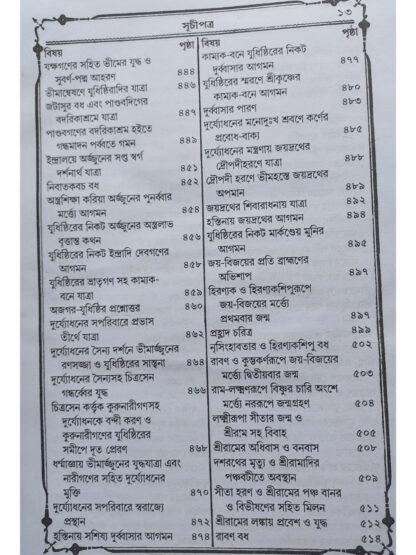 সূচীপত্র
১৩
বিষয় পৃষ্ঠা
যক্ষগণের সহিত ভীমের যুদ্ধ ও
সুবর্ণ-পদ্ম আহরণ ৪৪৪
ভীমান্বেষণে যুধিষ্ঠিরাদির যাত্রা ৪৪৬
জটাসুর বধ এবং পাণ্ডবদিগের
বদরিকাশ্রমে যাত্রা ৪৪৭
পাণ্ডবগণের বদরিকাশ্রম হইতে
গন্ধমাদন পর্ব্বতে গমন ৪৪৯
ইন্দ্রালয়ে অর্জ্জুনের সপ্ত স্বর্গ
দর্শনার্থ যাত্রা ৪৫১
নিবাতকবচ বধ ৪৫২
অস্ত্রশিক্ষা করিয়া অর্জ্জুনের পুনর্ব্বার
মর্ত্ত্যে আগমন ৪৫৪
যুধিষ্ঠিরের নিকট অর্জ্জুনের অস্ত্রলাভ
বৃত্তান্ত কথন ৪৫৬
যুধিষ্ঠিরের নিকট ইন্দ্রাদি দেবগণের
আগমন ৪৫৮
যুধিষ্ঠিরের ভ্রাতৃগণ সহ কাম্যক-
বনে যাত্রা ৪৫৯
অজগর-যুধিষ্ঠির প্রশ্নোত্তর ৪৬০
দুর্য্যোধনের সপরিবারে প্রভাস
তীর্থে যাত্রা ৪৬২
দুর্য্যোধনের সৈন্য দর্শনে ভীমার্জ্জুনের
রণসজ্জা ও যুধিষ্ঠিরের সান্ত্বনা ৪৬৪
দুর্য্যোধনের সৈন্যসহ চিত্রসেন
গন্ধর্ব্বের যুদ্ধ ৪৬৬
চিত্রসেন কর্ত্তৃক কুরুনারীগণসহ
দুর্য্যোধনকে বন্দী করণ ও
কুরুনারীগণের যুধিষ্ঠিরের
সমীপে দূত প্রেরণ ৪৬৮
ধর্ম্মাজ্ঞায় ভীমার্জ্জুনের যুদ্ধযাত্রা এবং
নারীগণের সহিত দুর্য্যোধনের
মুক্তি ৪৭০
দুর্য্যোধনের সপরিবারে স্বরাজ্যে
প্রস্থান ৪৭২
হস্তিনায় সশিষ্য দুর্ব্বাসার আগমন ৪৭৪
বিষয় পৃষ্ঠা
কাম্যক-বনে যুধিষ্ঠিরের নিকট
দুর্ব্বাসার আগমন ৪৭৭
যুধিষ্ঠিরের স্মরণে শ্রীকৃষ্ণের
কাম্যক-বনে আগমন ৪৮০
দুর্ব্বাসার পারণ ৪৮৩
দুর্য্যোধনের মনোদুঃখ শ্রবণে কর্ণের
প্রবোধ-বাক্য ৪৮৫
দুর্য্যোধনের মন্ত্রণায় জয়দ্রথের
দ্রৌপদীহরণে যাত্রা ৪৮৮
দ্রৌপদী হরণে ভীমহস্তে জয়দ্রথের
অপমান ৪৮৯
জয়দ্রথের শিবারাধনায় যাত্রা ৪৯২
হস্তিনায় জয়দ্রথের আগমন ৪৯৪
যুধিষ্ঠিরের নিকট মার্কণ্ডেয় মুনির
আগমন ৪৯৫
জয়-বিজয়ের প্রতি ব্রাহ্মণের
অভিশাপ ৪৯৭
হিরণ্যক ও হিরণ্যকশিপুরূপে
জয়-বিজয়ের মর্ত্ত্যে
প্রথমবার জন্ম ৪৯৭
প্রহ্লাদ চরিত্র ৪৯৯
নৃসিংহাবতার ও হিরণ্যকশিপু বধ ৫০২
রাবণ ও কুম্ভকর্ণরূপে জয়-বিজয়ের
মর্ত্ত্যে দ্বিতীয়বার জন্ম ৫০৩
রাম-লক্ষ্মণরূপে বিষ্ণুর চারি অংশে
মর্ত্ত্যে নররূপে জন্মগ্রহণ ৫০৪
লক্ষ্মীরূপা সীতার জন্ম ও
শ্রীরাম সহ বিবাহ ৫০৫
শ্রীরামের অধিবাস ও বনবাস ৫০৮
দশরথের মৃত্যু ও শ্রীরামাদির
পঞ্চবটীতে অবস্থান ৫০৯
সীতা হরণ ও শ্রীরামের পঞ্চ বানর
ও বিভীষণের সহিত মিলন ৫১১
শ্রীরামের লঙ্কায় প্রবেশ ও যুদ্ধ ৫১২
রাবণ বধ ৫১৪